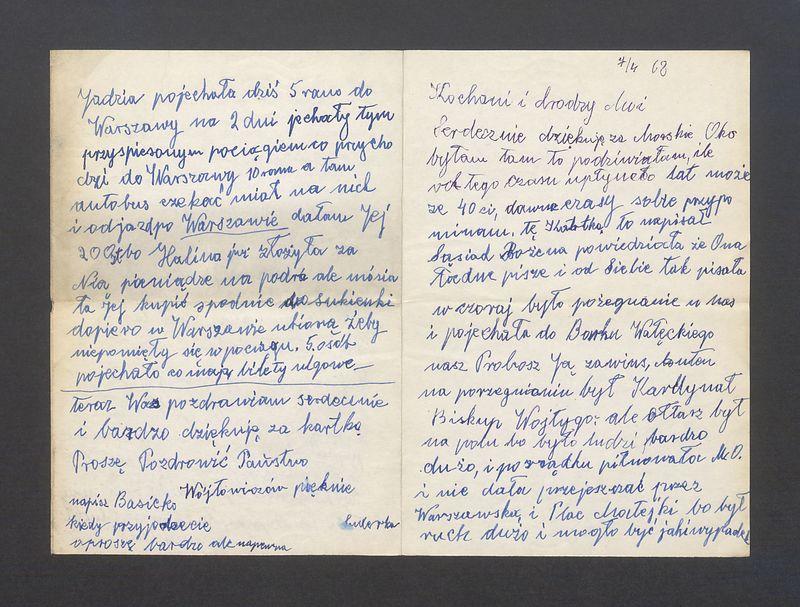 7/4 68
Kochani i drodzy Moi
Serdecznie dziękuję za Morskie Oko
byłam tam to podziwiałam, ile
od tego czasu upłyneło lat może
ze 40 ci, dawne czasy sobie przypo
minam, tę Kartkę to napisał
Sąsiad Bożena powiedziała że Ona
Ładne pisze i od Siebie tak pisała
w czoraj było pożegnanie u nas
i pojechała do Borku Wałęckiego
nasz Probosz Ją zawiusł,
na porzegnaniu był Kardynał
Biskup Wojtyga: ale ołtarz był
na polu bo było ludzi bardzo
dużo, i porządku pilnowała M.O.
i nie dała przejeszczać przez
Warszawską i Plac Matejki bo był
ruch dużo i mogło być jakiwypadek
Jadzia pojechała dziś 5 rano do
Warszawy na 2 dni jechały tym
przyspieszonym pociągiem co przycho
dzi do Warszawy 10 rano a tam
autobus czekać miał na nich
i odjazdpo Warszawie dałam Jej
200zł bo Halina już złożyła za
Nią pieniądze na podró ale miała
ta Jej kupić spodnie do sukienki
dopiero w Warszawie ubiorą żeby
niepomięły się w pociągu. 5. osób
pojechało co mają bilety ulgowe
teraz Was pozdrawiam serdecznie
i bardzo dziękuję za kartkę
Proszę Pozdrowić Państwo
Wójtowiczów pięknie
napisz Basieńko
kiedy przyjedziecie
oproszę bardzo ale napewno